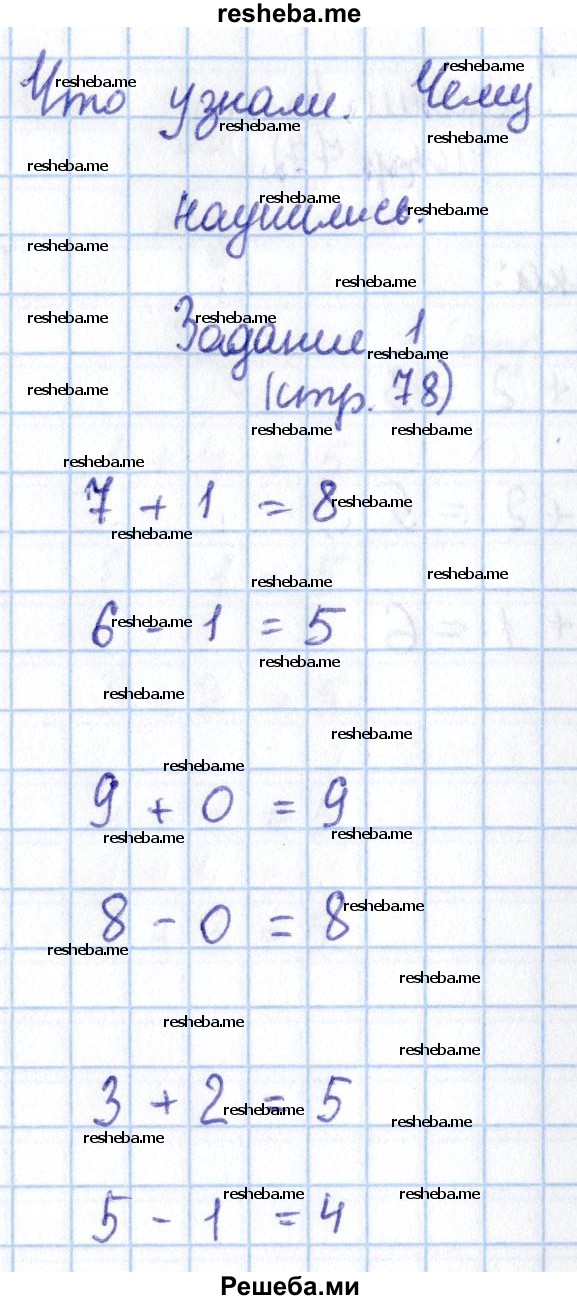 resheba.me
Что узнали. Чему
научились.
Задание 1
(стр. 78)
7 + 1 = 8
6 - 1 = 5
9 + 0 = 9
8 - 0 = 8
3 + 2 = 5
5 - 1 = 4
Решеба.ми